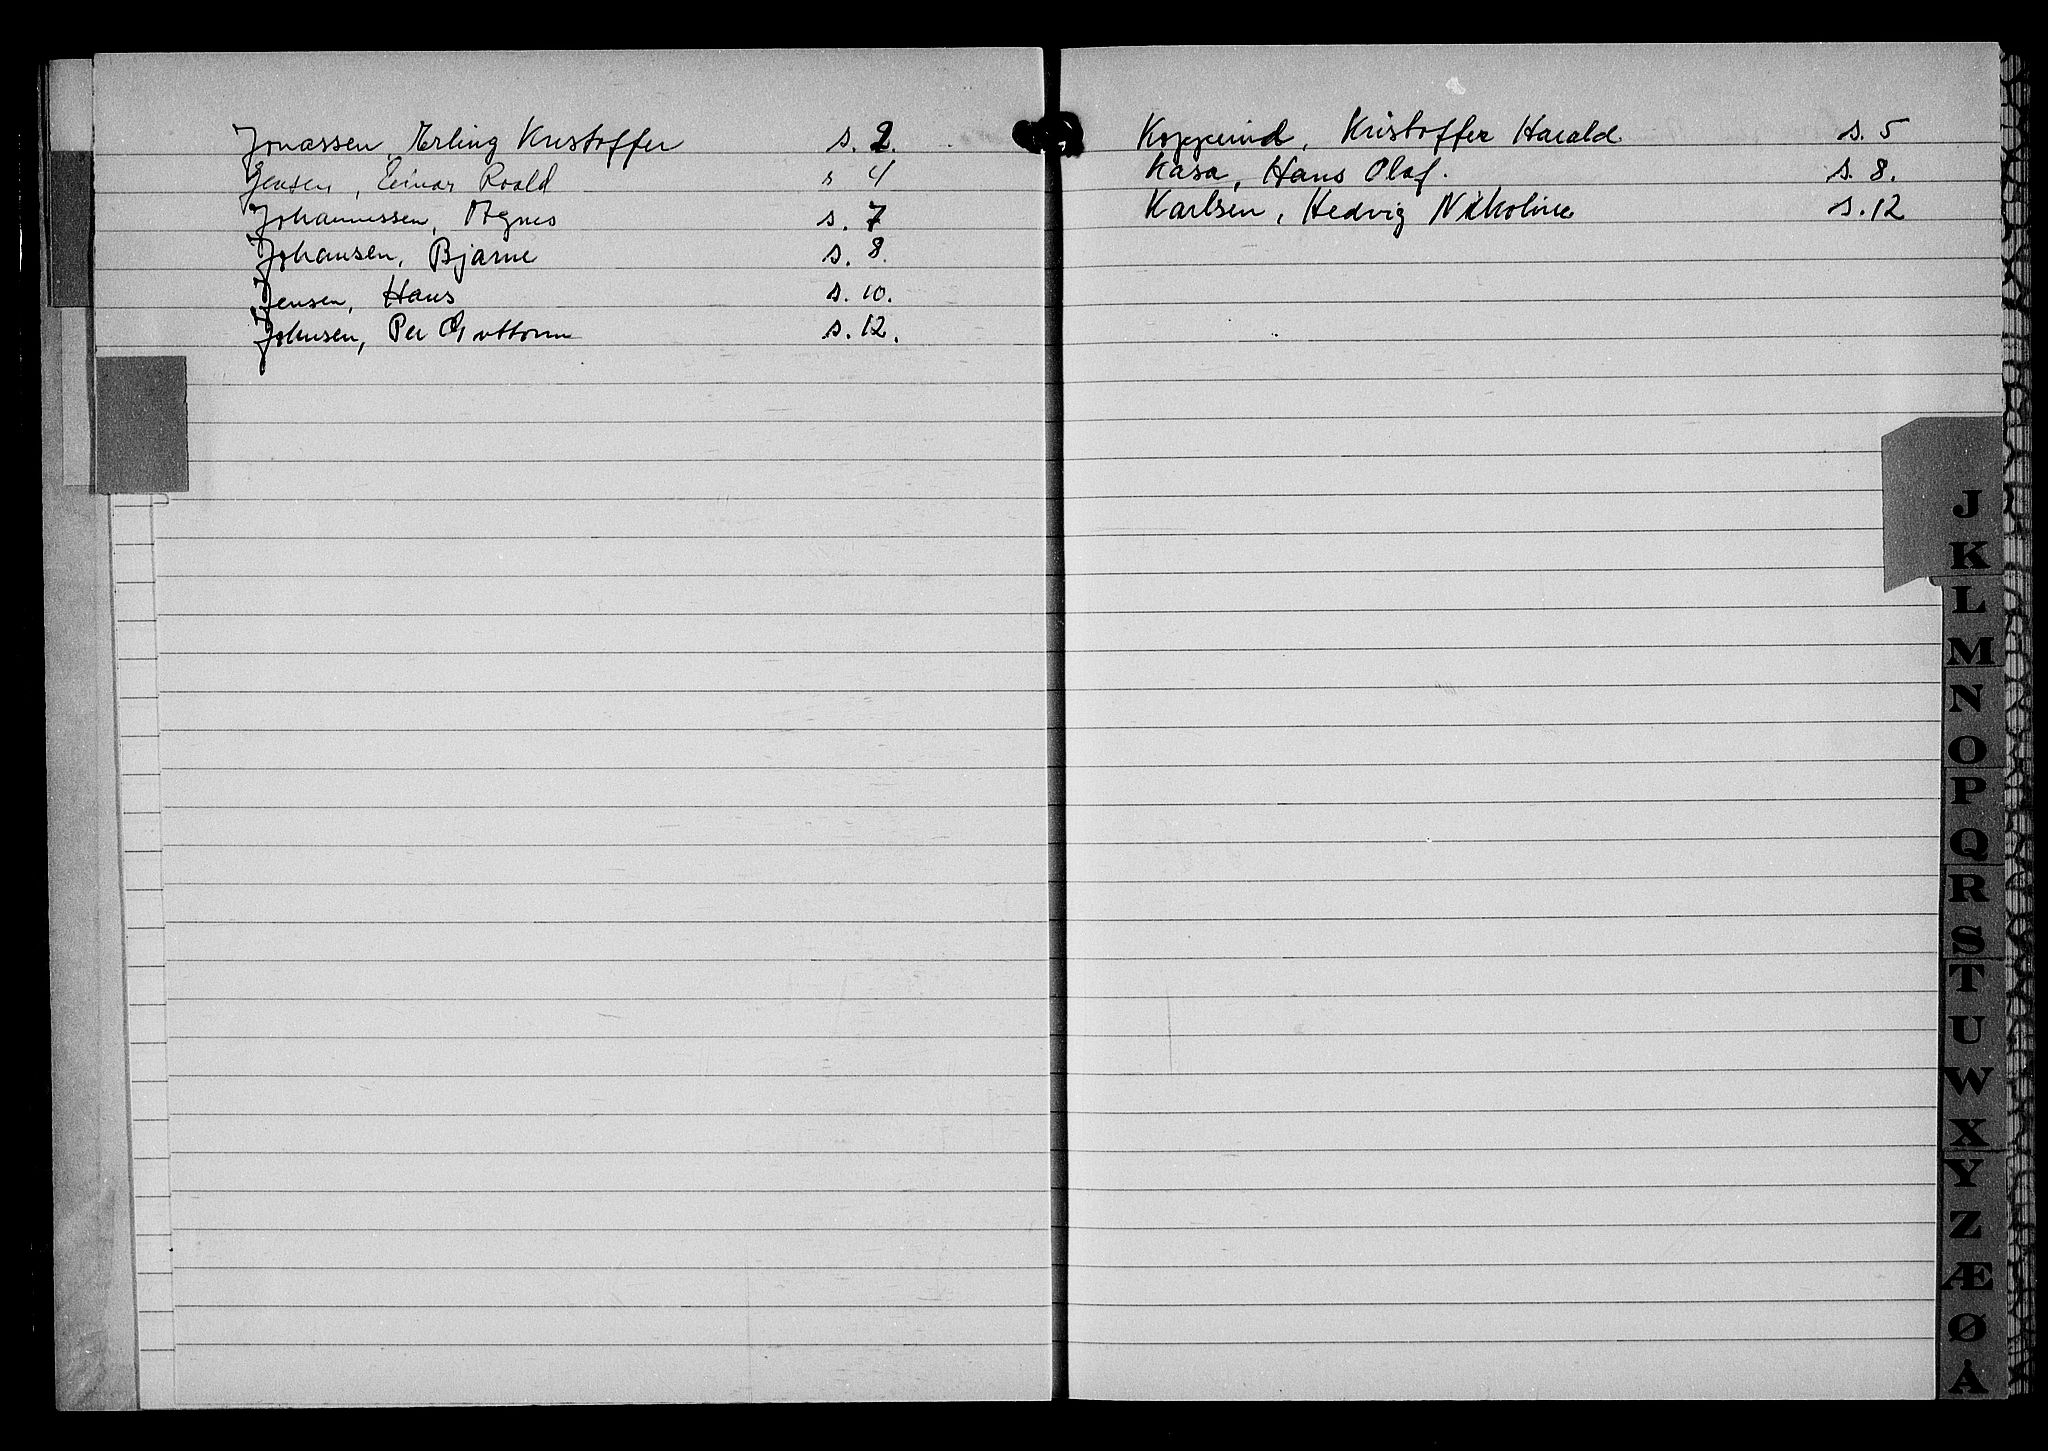 Jonassen, Erling Kristoffer s. 2.
Jensen, Einar Roald s 4
Johannessen, Agnes s. 7
Johansen, Bjarne s. 8.
Jensen, Hans s. 10.
Johnsen, Per Guttorm s. 12.
Kristoffer Harald s. 5
Kasa, Hans Olaf. s. 8.
Karlsen, Hedvig Nikoline s. 12
J
K
L
M
N
O
P
Q
R
S
T
U
W
X
Y
Z
Æ
Ø
Å